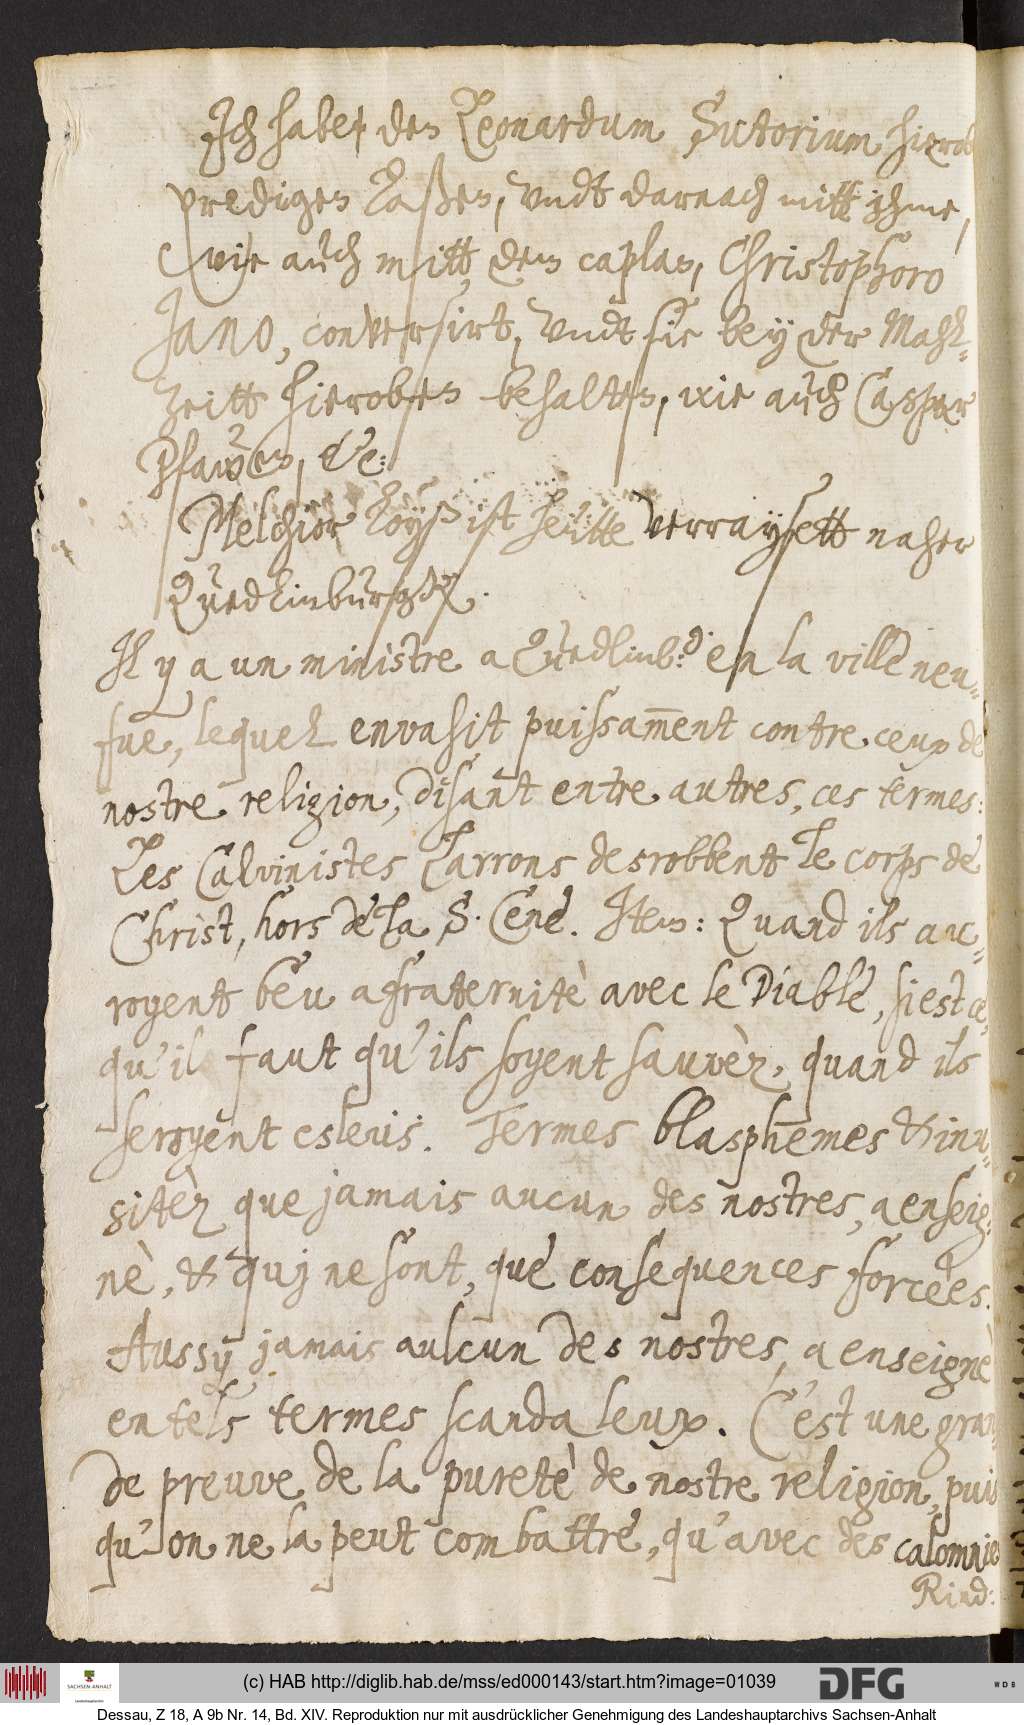 Ich habe, den Leonardum Sutorium hierob
predigen laßen, vndt darnach mitt jhme,
wie auch mitt, dem caplan, Christophoro
Jano, conversirt, vndt sie bey der Mahl-
zeitt hieroben behalten, wie auch Casper
Pfawen, &c:
Melchior Loyß ist heütte verraysett naher
Quedlinburgk.
Il y a un ministre a Quedlinb: en la ville neu-
fue, lequel envahit puissam̅ent contre ceux de
nostre religion, disant entre autres, ces termes:
Les Calvinistes Larrons desrobbent le corps de
Christ, hors de la S. Cene. Item: Quand ils au-
royent beu a fraternitè avec le Diable, si est ce,
qu'il faut qu'ils soyent sauvèz, quand ils
seroyent esleus. Termes blasphemes & inu-
sitèz que jamais aucun des nostres, a enseig-
nè, & quj ne sont, que consequences forcèes.
Aussy jamais aulcun des nostres, a enseignè
en tels termes scandaleux. C'est une gran-
de preuve de la puretè de nostre religion, puis
qu'on ne la peut combattre, qu'avec des calomnies
Rind:
(c) HAB http://diglib.hab.de/mss/ed000143/start.htm?image=01039
SACHSEN-ANHALT
DFG
WDB
Dessau, Z 18, A 9b Nr. 14, Bd. XIV. Reproduktion nur mit ausdrücklicher Genehmigung des Landeshauptarchivs Sachsen-Anhalt